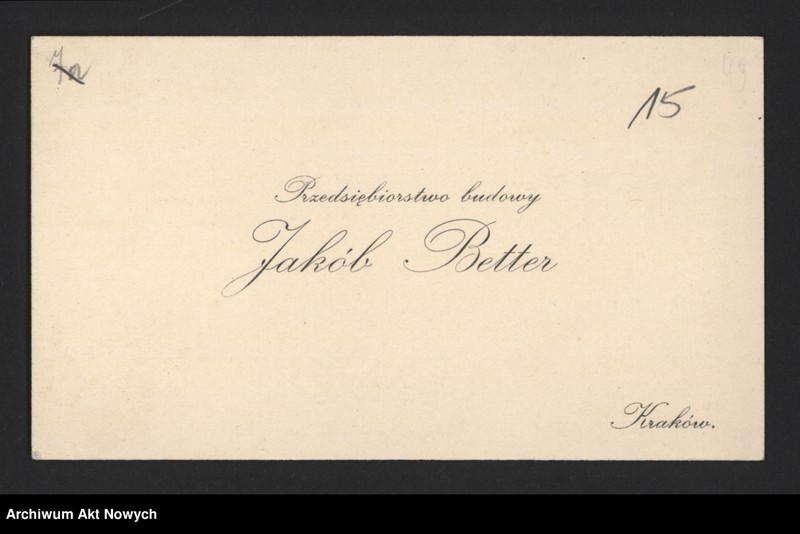 15
Przedsiębiorstwo budowy
Jakób Better
Kraków.
Archiwum Akt Nowych